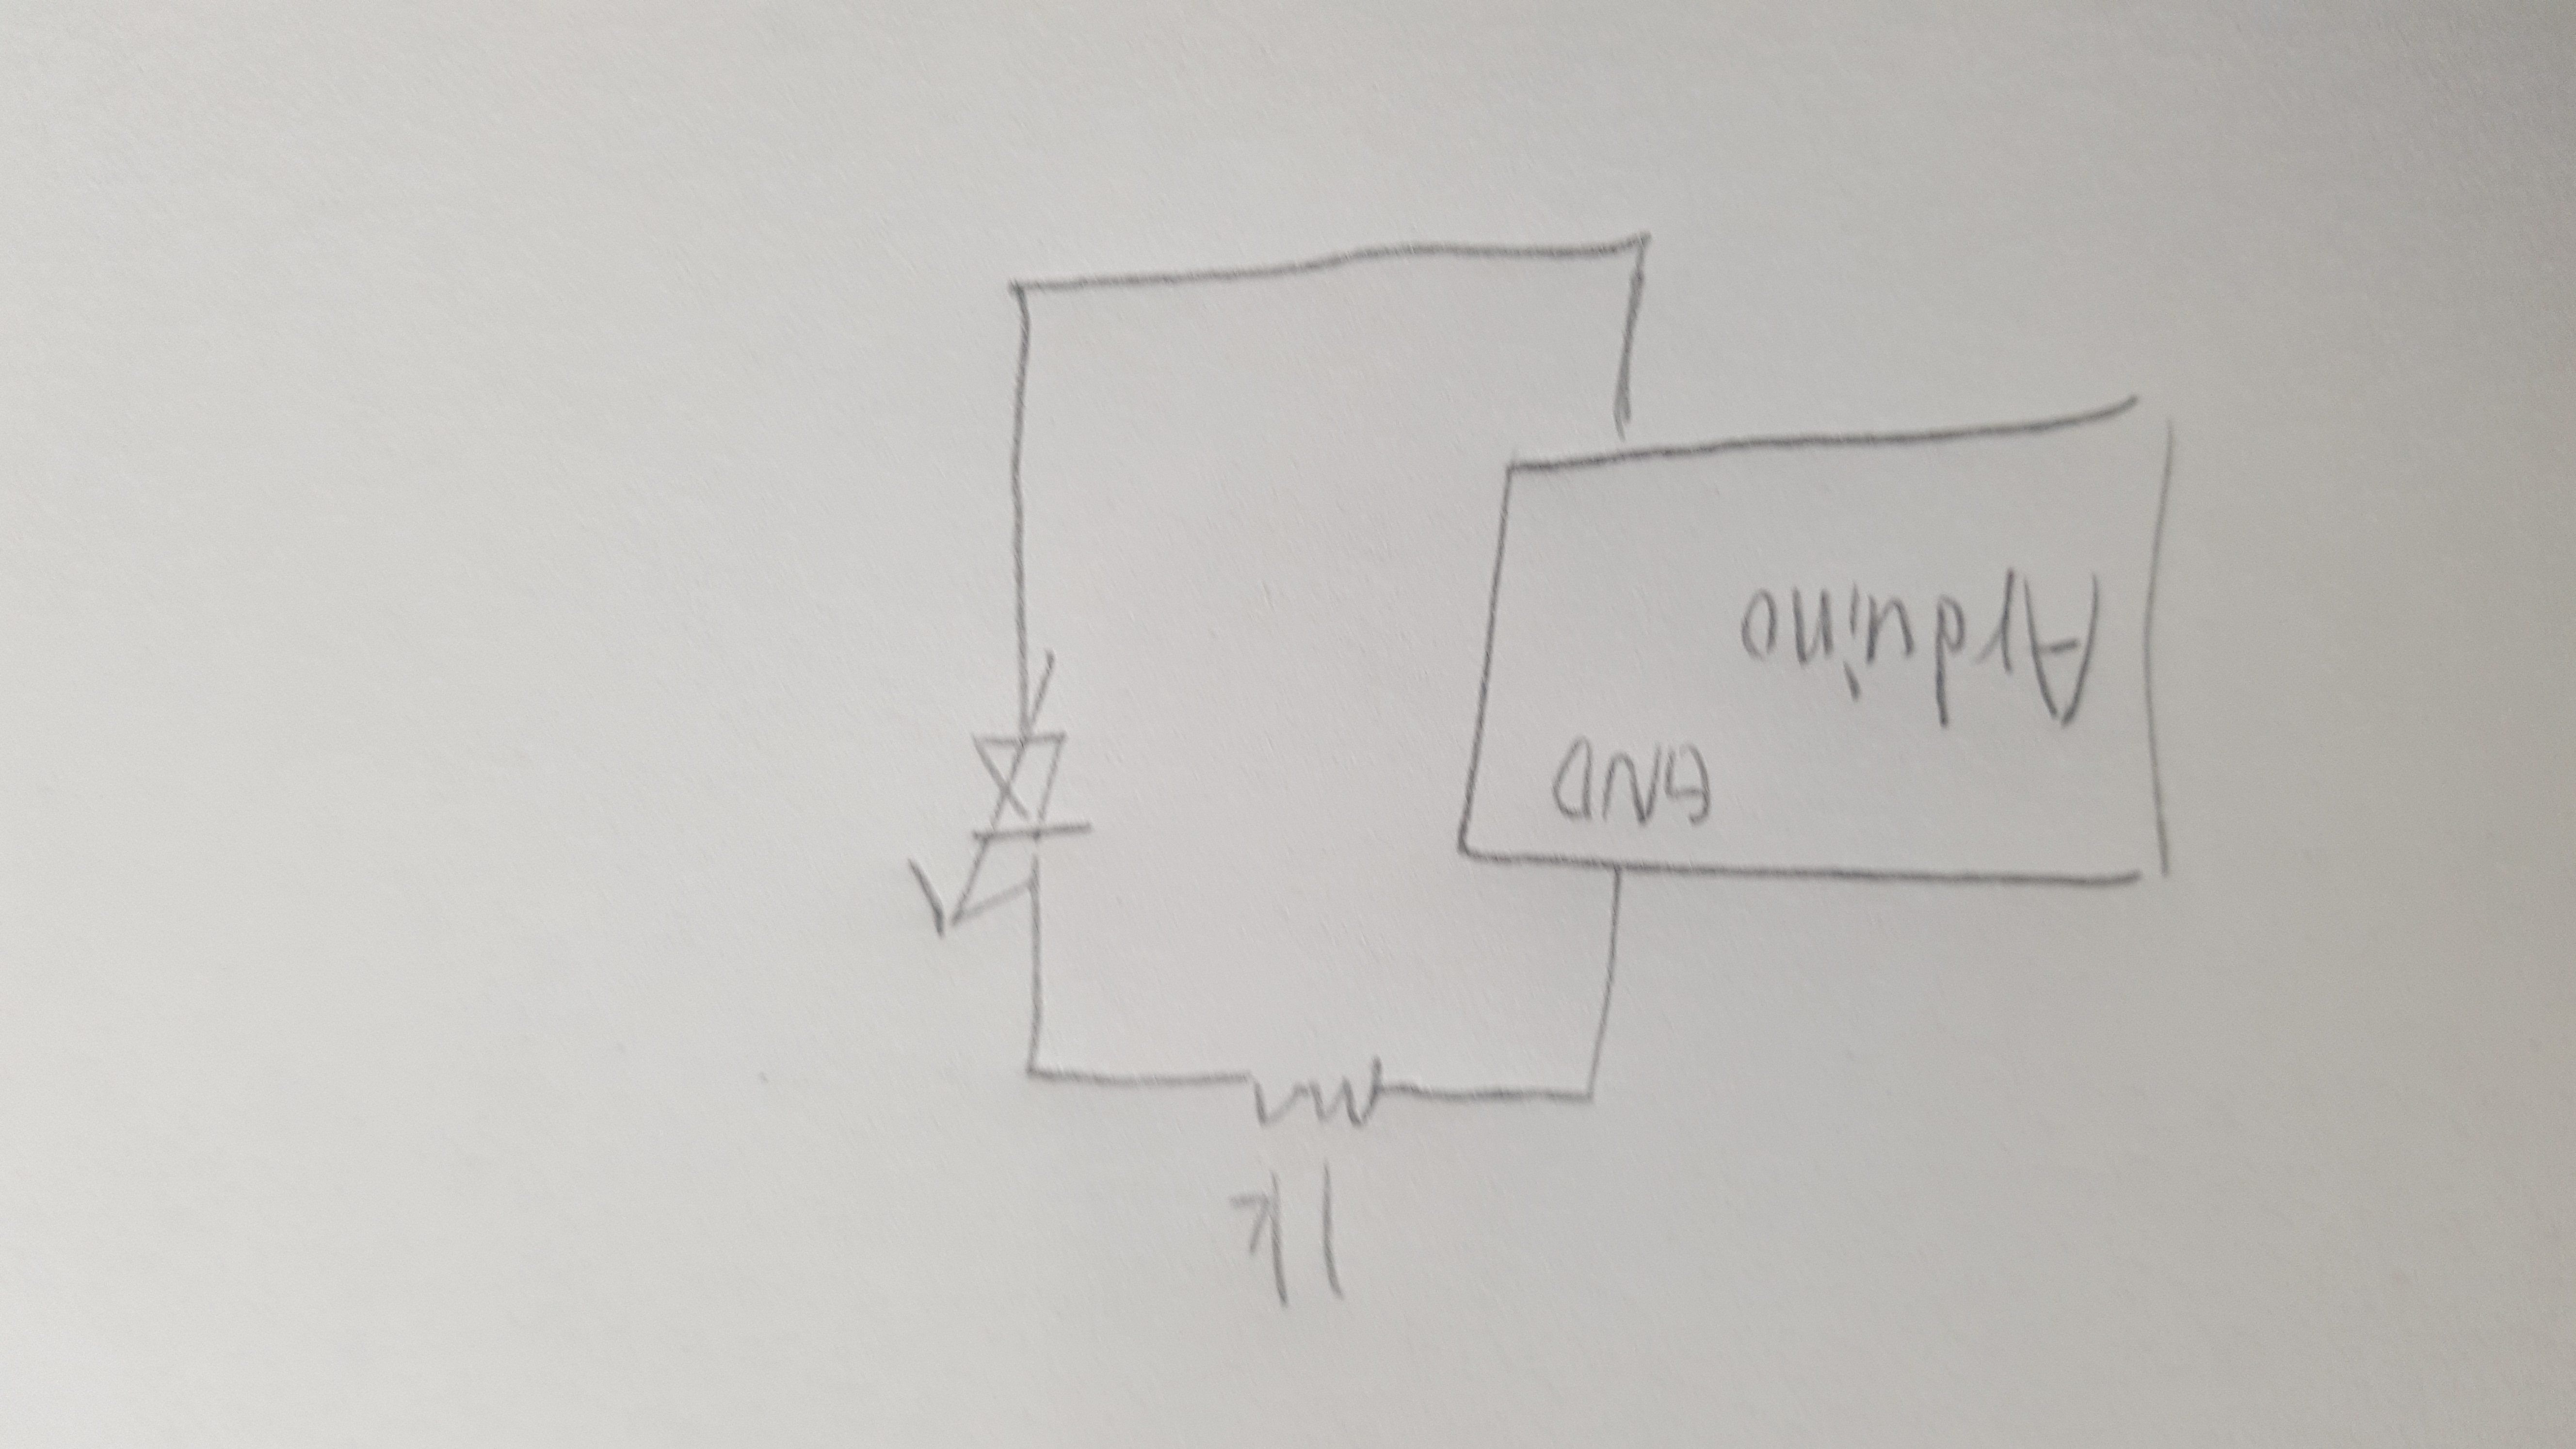 1k
GND
Arduino